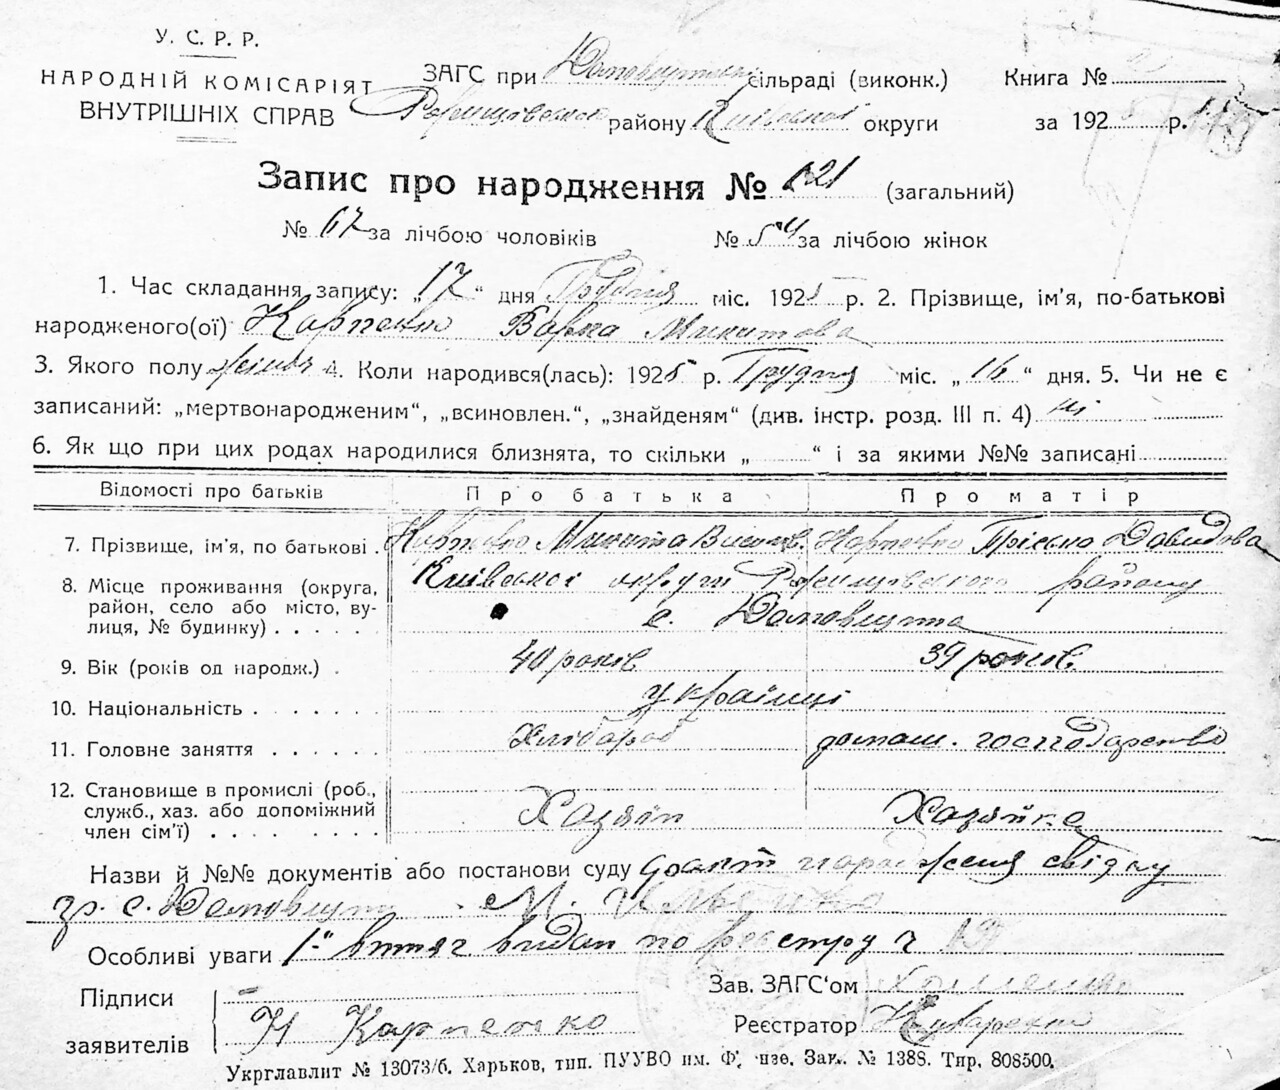 У. С. Р. Р.
НАРОДНІЙ КОМІСАРІЯТ
ВНУТРІШНІХ СПРАВ
ЗАГС при сільраді (виконк.)
району Київської округи
Книга №
за 192 5 р.
Запис про народження № 121 (загальний)
№ 67 за лічбою чоловіків № 54 за лічбою жінок
1. Час складання запису: „17“ дня Грудня міс. 1925 р. 2. Прізвище, ім'я, по-батькові
народженого(ої) Карпенко Варка Микитова
3. Якого полу жіноч 4. Коли народився(лась): 1925 р. Грудня міс. „16“ дня. 5. Чи не є
записаний: „мертвонародженим“, „всиновлен.“, „знайденям“ (див. інстр. розд. III п. 4) ні
6. Як що при цих родах народилися близнята, то скільки „ “ і за якими №№ записані
Відомості про батьків Про батька Про матір
7. Прізвище, ім'я, по батькові . Карпенко Микита Карпенко Давидова
8. Місце проживання (округа, район, село або місто, вулиця, № будинку) Київської округи Ржищівського району
с. Домовиття
9. Вік (років од народж.) . 40 років 39 років.
10. Національність українці
11. Головне заняття Хлібороб домаш. господарство
12. Становище в промислі (роб., служб., хаз. або допоміжний член сім'ї) Хазяїн Хазяйка
Назви й №№ документів або постанови суду факт народження свідчу
гр. с. М.
Особливі уваги 1й витяг видан по реєстру ч
Підписи
заявителів
Н Карпенко
Зав. ЗАГС'ом
Реєстратор
Укрглавліт № 13073/б. Харьков, тип. ПУУВО им. Фрунзе. Зак. № 1388. Тир. 808500.